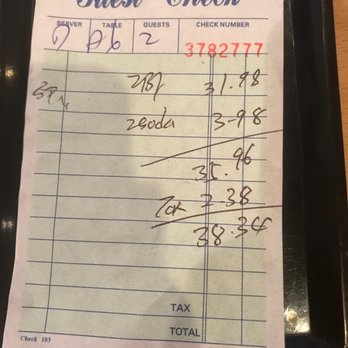 Guest Check
SERVER TABLE GUESTS CHECK NUMBER
A6 2 3782777
31.98
2soda 3-98
35.96
Tax 2.38
38.34
TAX
TOTAL
Check 103